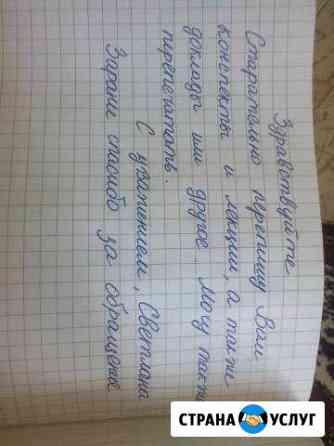 Здравствуйте
Старательно перепишу Вам
конспекты и лекции, а также
доклады или другие. Могу также
перепечатать.
С уважением, Светлана
Заранее спасибо за обращение
СТРАНА УСЛУГ